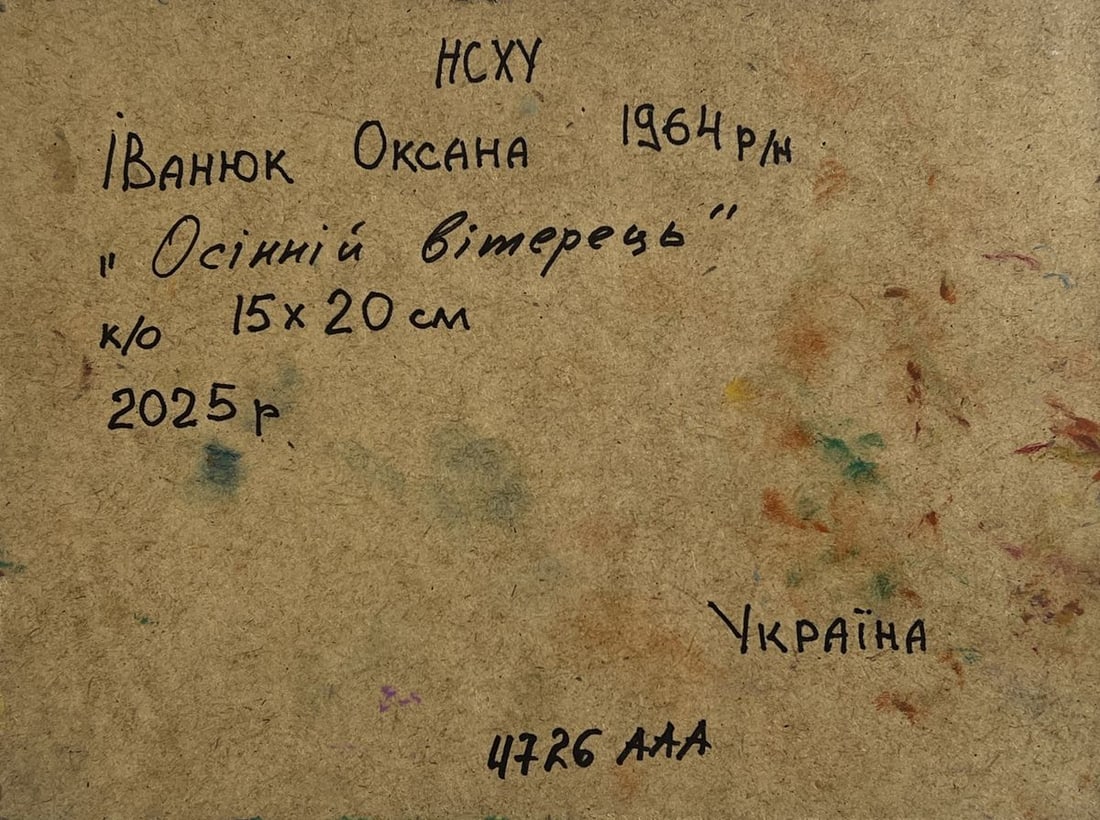 НСХУ
Іванюк Оксана 1964 р/н
„Осінній вітерець"
к/о 15х20 см
2025 р.
Україна
4726 ААА